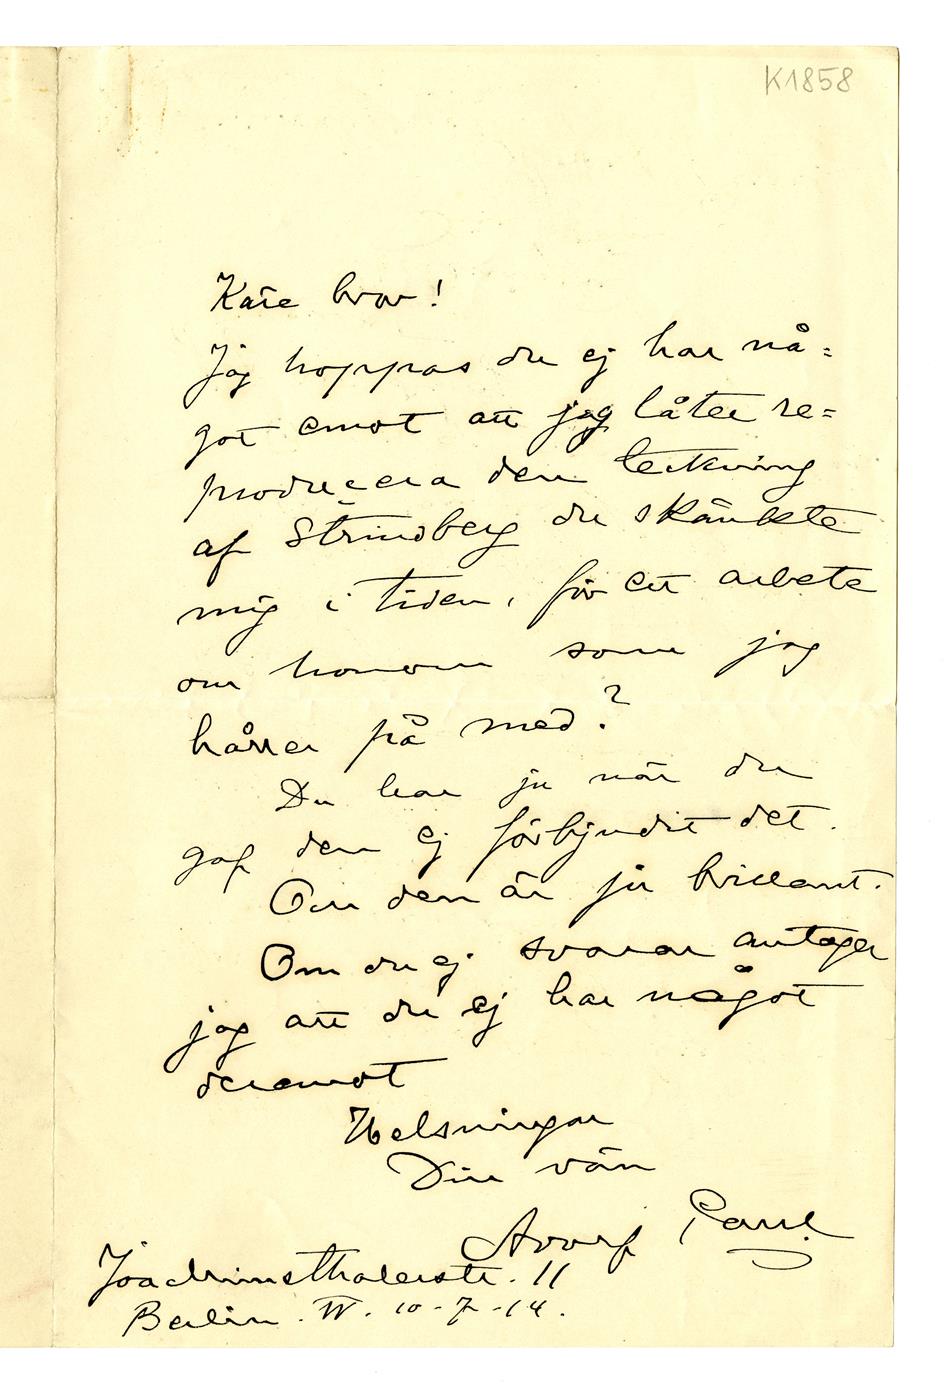 K1858
Käre bror!
Jag hoppas du ej har nå=
got emot att jag låter re=
producera den teckning
af Strindberg du skänkte
mig i tiden, för ett arbete
om honom som jag
håller på med?
Du har ju när du
gaf den ej förbjudit det.
Om den är ju brillant.
Om du ej svarar antager
jag att du ej har något
deremot
Helsningar
Din vän
Adolf Paul
Joachimsthalerstr. 11
Berlin. W. 10-7-14.